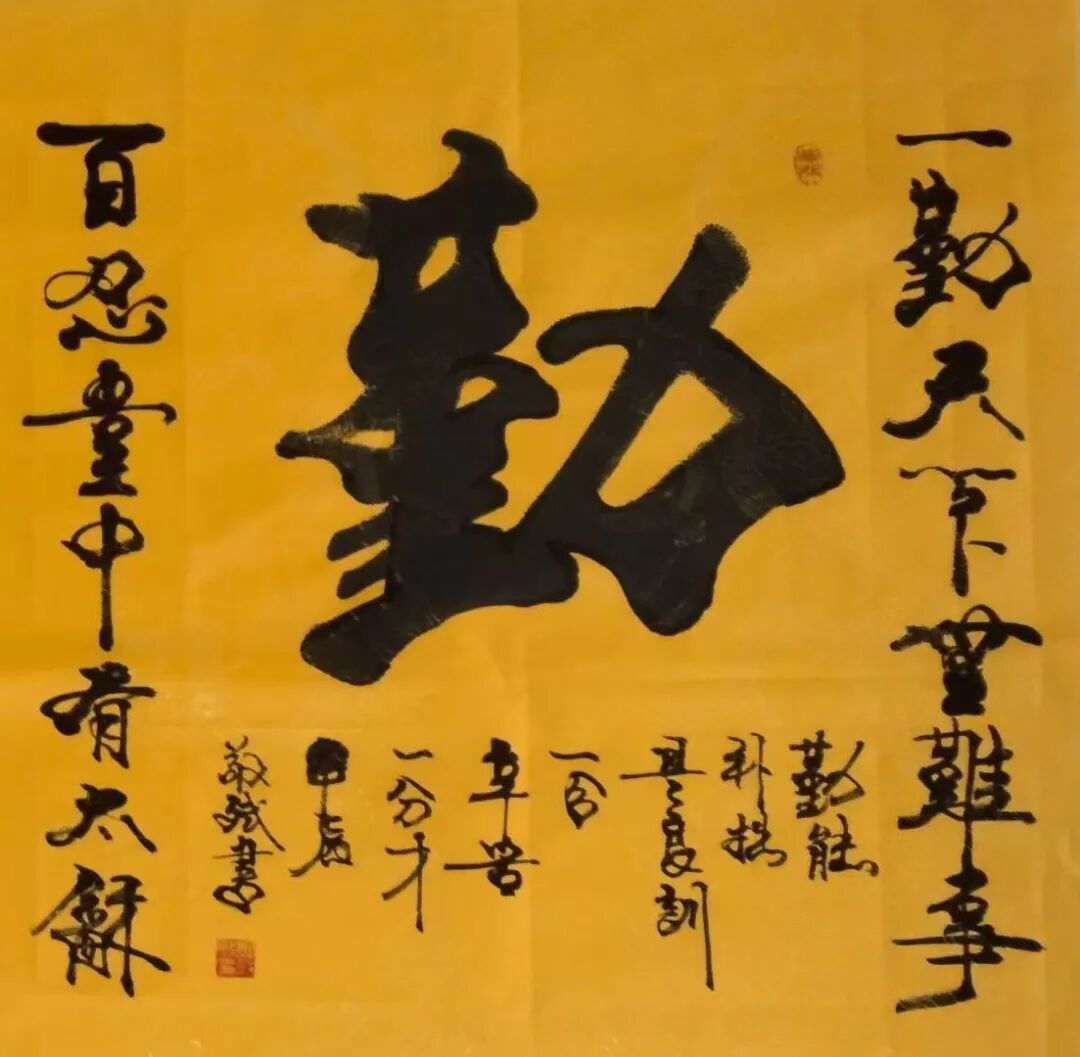 一勤天下無難事
勤
勤能
补拙
是良訓
一分
辛苦
一分才
甲辰
百忍堂中有太龢